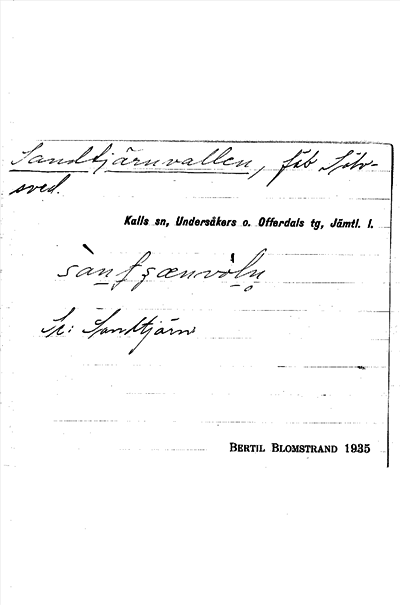 Sandtjärnvallen, fäb
sved.
Kalls sn, Undersåkers o. Offerdals tg, Jämtl. l.
Se: Sandtjärn
BERTIL BLOMSTRAND 1935